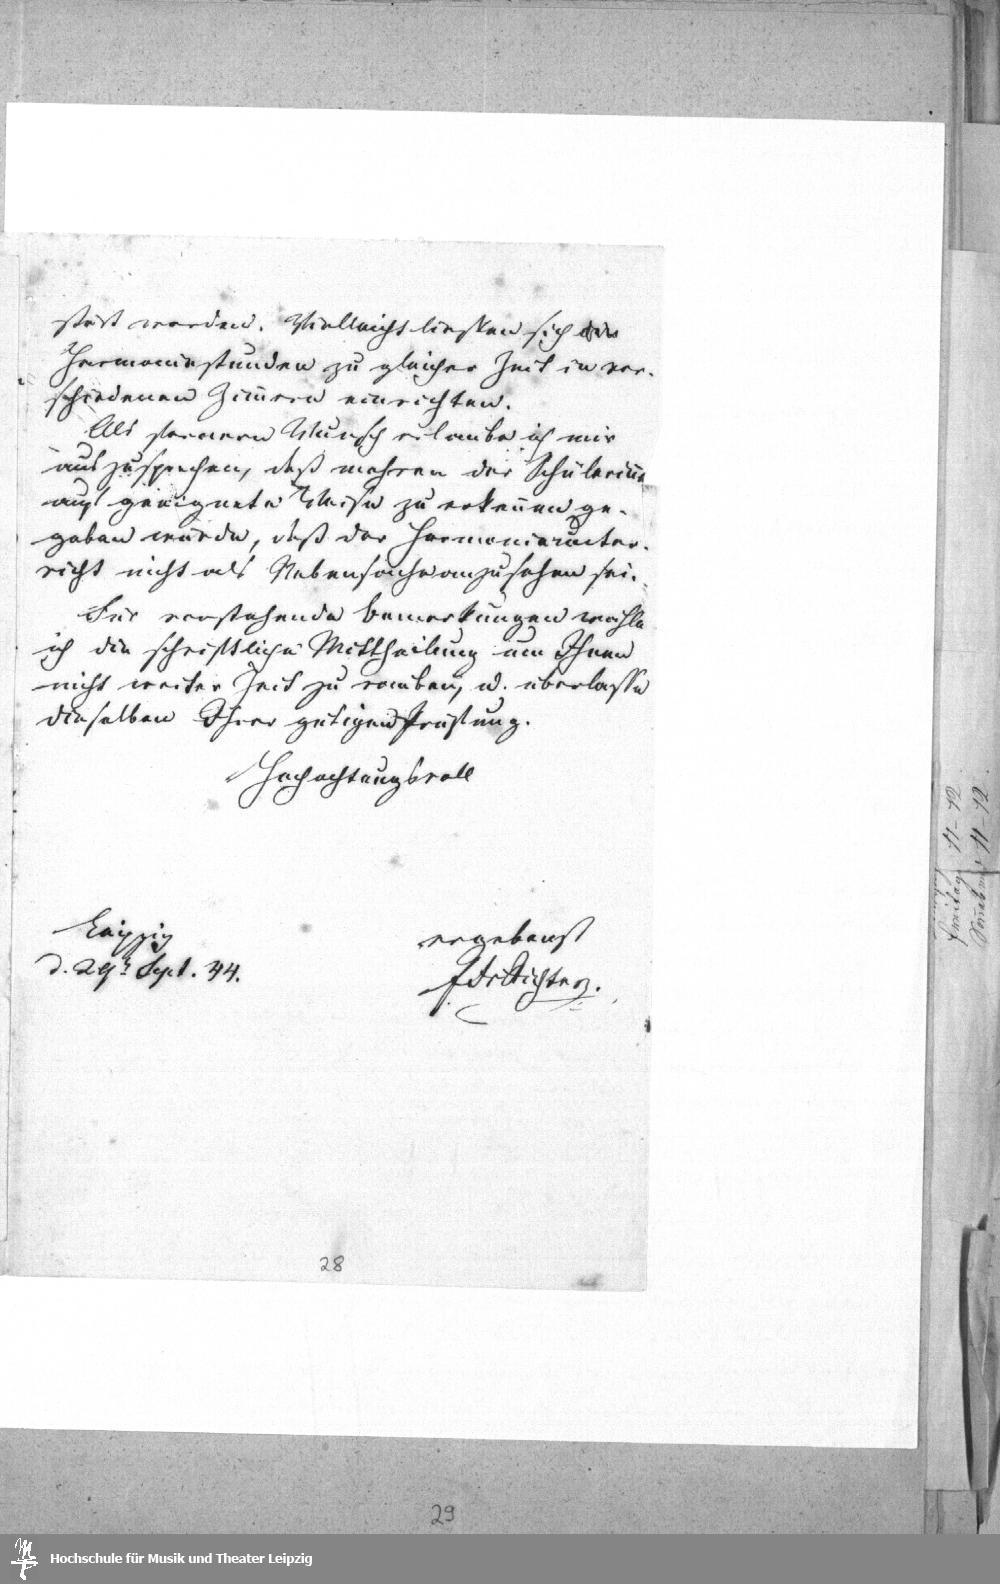 stört werden. Vielleicht ließen sich die
Harmoniestunden zu gleicher Zeit in ver-
schiedenen Zimmern einrichten.
Als ferneren Wunsch erlaube ich mir
auszusprechen, daß mehren der Schülerinn
auf geeignete Weise zu erkennen ge-
geben würde, daß der Harmonieunter-
richt nicht als Nebensache anzusehen sei.
Für vorstehende Bemerkungen wähle
ich die schriftliche Mittheilung um Ihnen
nicht weiter Zeit zu rauben, u. überlasse
dieselben Ihrer gütigen Prüfung.
Hochachtungsvoll
Leipzig
d. 29t Sept. 44.
ergebenst
Richter.
28
Freitag 11-12
Sonnabend 11-12.
29
Hochschule für Musik und Theater Leipzig